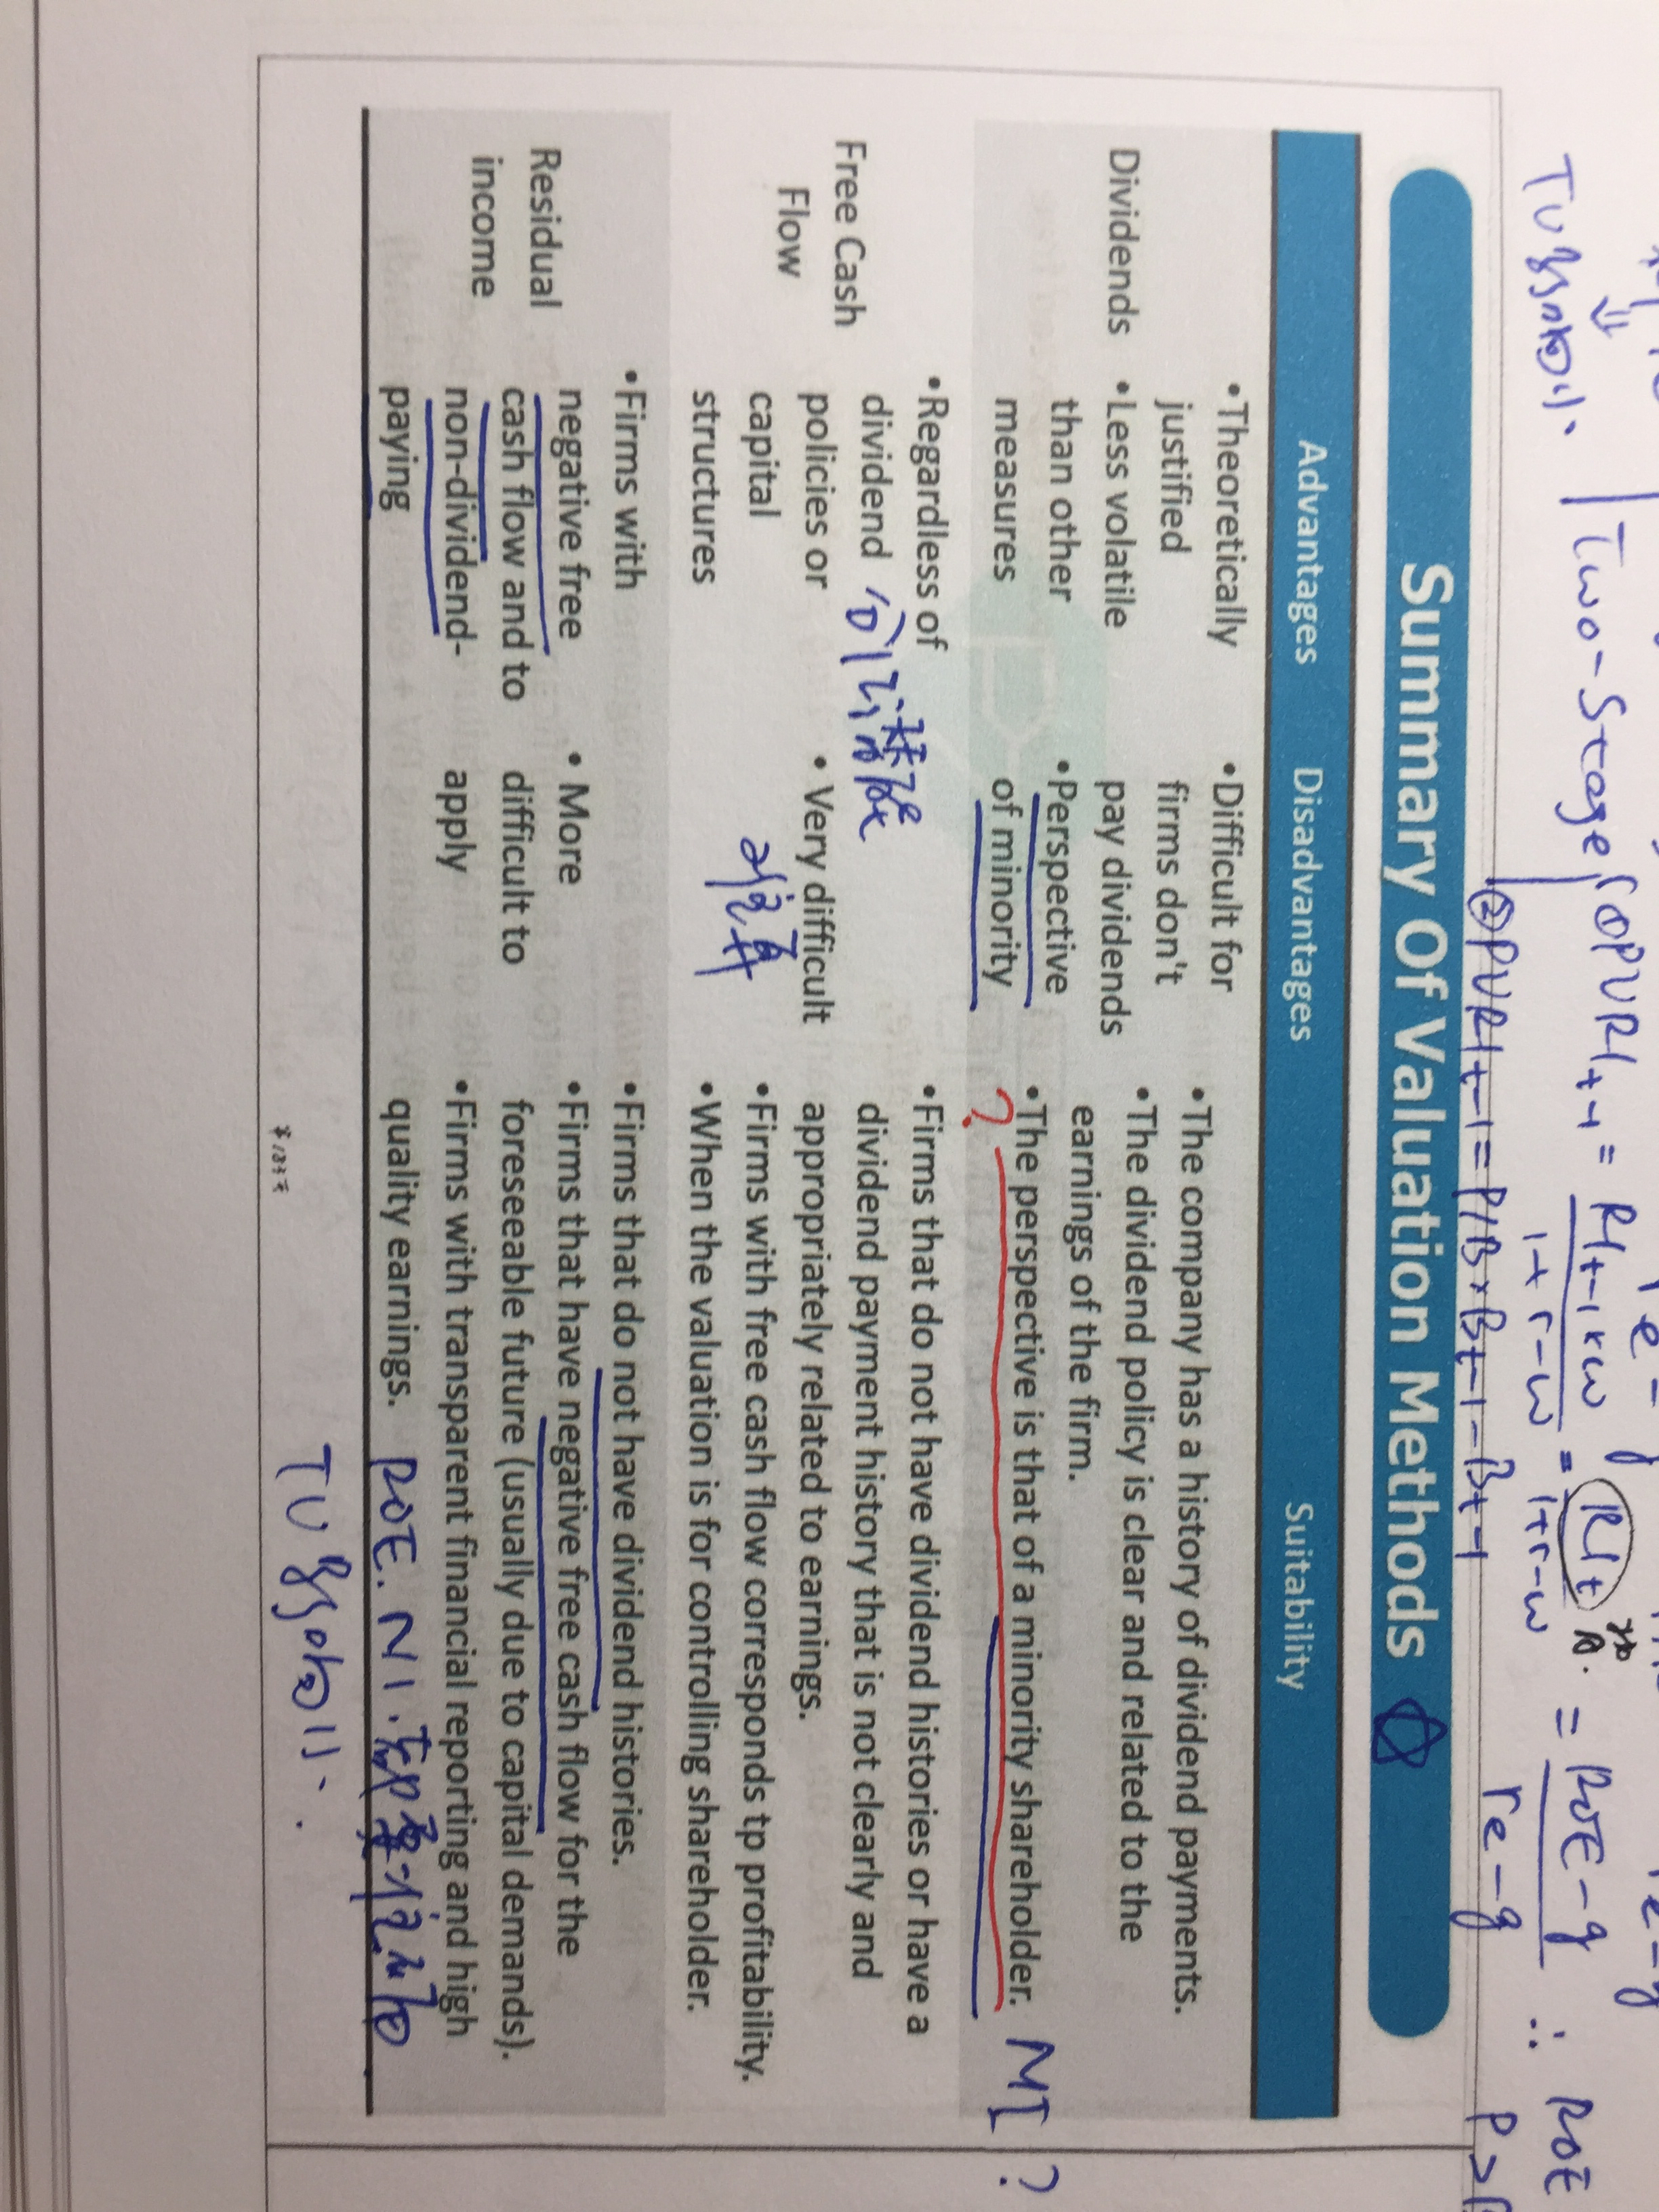 Two-Stage
①PVRIt-1 = RIt-1×w
1+r-w
②PVRIt-1=P/B×Bt-1-Bt-1
ROE-g
re-g
∴ ROE
Summary Of Valuation Methods
Advantages Disadvantages Suitability
Dividends
•Theoretically
justified
•Less volatile
than other
measures
•Difficult for
firms don't
pay dividends
•Perspective
of minority
•The company has a history of dividend payments.
•The dividend policy is clear and related to the
earnings of the firm.
•The perspective is that of a minority shareholder. MI ?
?
Free Cash
Flow
•Regardless of
dividend
policies or
capital
structures
• Very difficult
•Firms that do not have dividend histories or have a
dividend payment history that is not clearly and
appropriately related to earnings.
•Firms with free cash flow corresponds tp profitability.
•When the valuation is for controlling shareholder.
Residual
income
•Firms with
negative free
cash flow and to
non-dividend-
paying
• More
difficult to
apply
•Firms that do not have dividend histories.
•Firms that have negative free cash flow for the
foreseeable future (usually due to capital demands).
•Firms with transparent financial reporting and high
quality earnings. ROE. NI.
TV